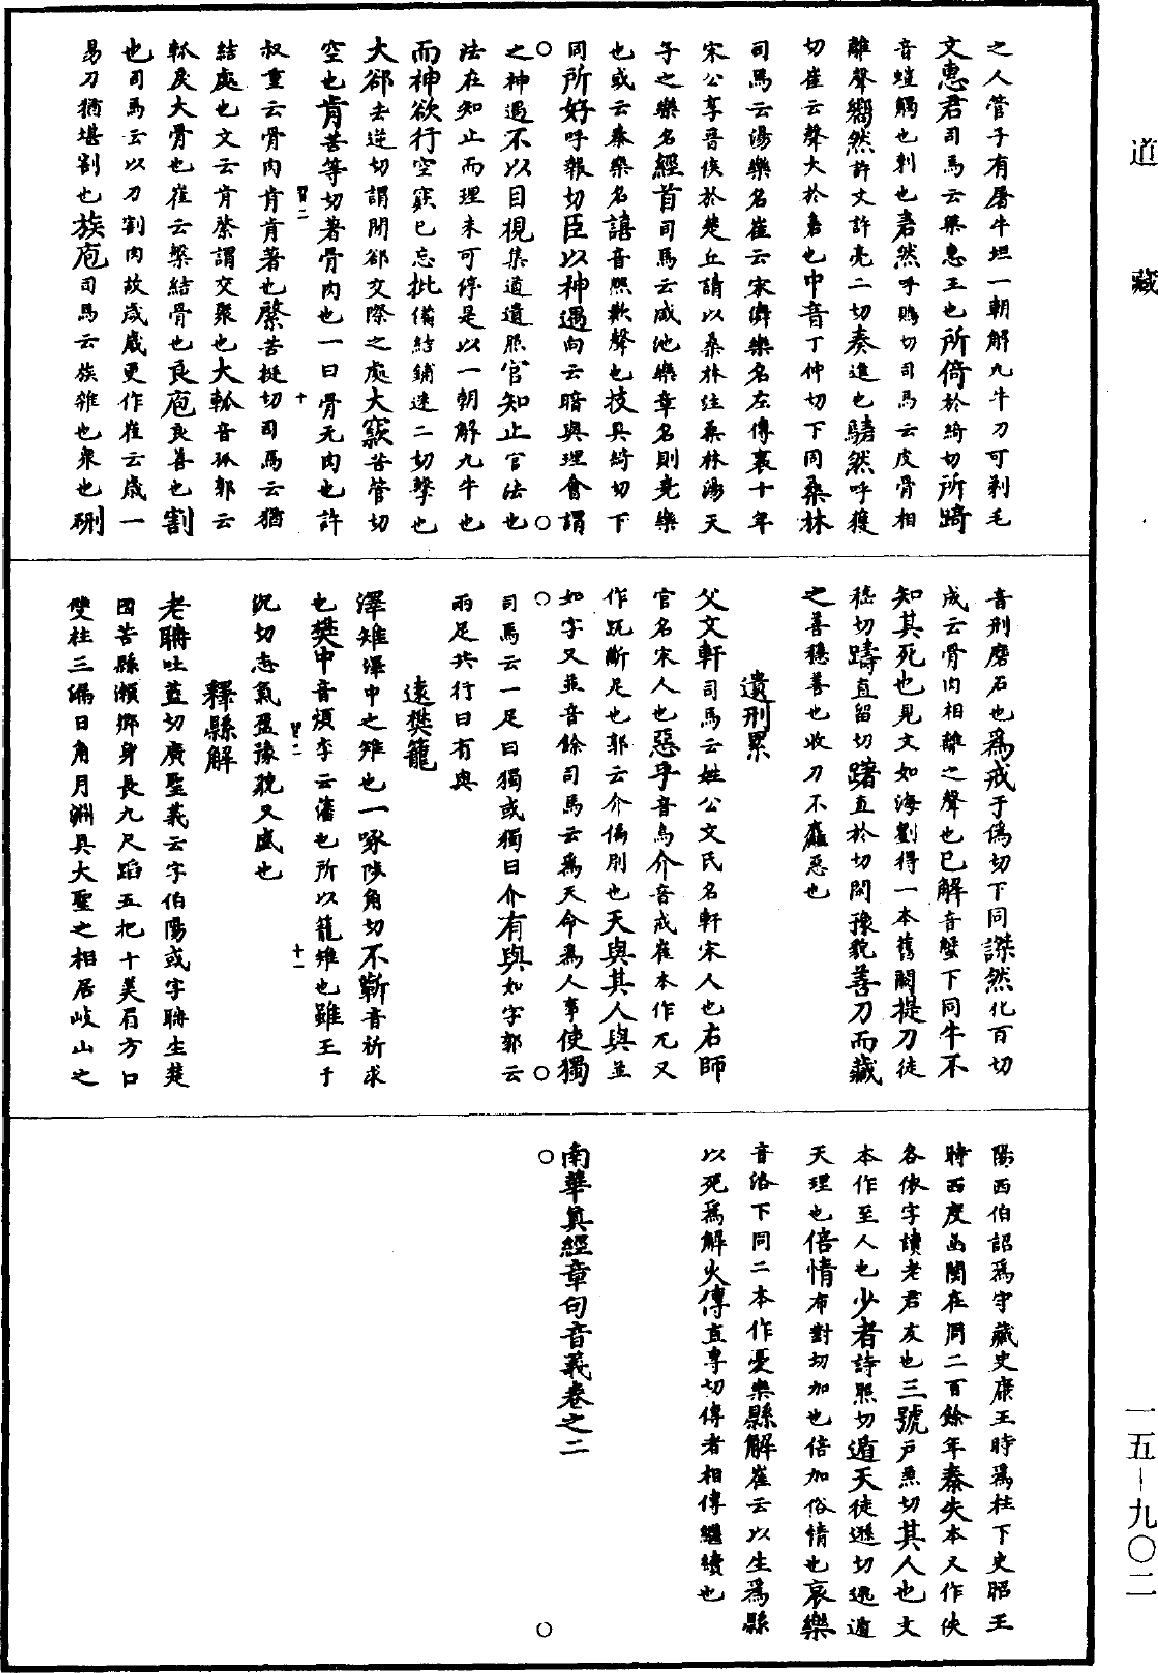 道藏
之人管子有屠牛坦一朝解九牛刀可剃毛
文惠君司馬云梁惠王也所倚於綺切所踦
音螘觸也刺也砉然呼鵙切司馬云皮骨相
離聲嚮然許丈許亮二切奏進也騞然呼獲
切崔云聲大於砉也中音丁仲切下同桑林
司馬云湯樂名崔云宋儛樂名左傳襄十年
宋公享晉侯於楚丘請以桑林注桑林湯天
子之樂名經首司馬云咸池樂章名則堯樂
也或云奏樂名譆音熙歎聲也技具綺切下
同所好呼報切臣以神遇向云暗與理會謂
之神遇不以目視集道遺照官知止官法也
法在知止而理未可停是以一朝解九牛也
而神欲行空窾已忘批備結鋪迷二切擊也
大郤去逆切謂閒郤交際之處大窾苦管切
空也肯苦等切著骨肉也一曰骨无肉也許
叔重云骨肉肯肯著也綮苦挺切司馬云猶
結處也文云肯綮謂交聚也大軱音孤郭云
軱戾大骨也崔云槃結骨也良庖良善也割
也司馬云以刀割肉故歲歲更作崔云歲一
易刀猶堪割也族庖司馬云族雜也衆也硎
音刑磨石也爲戒于僞切下同謋然化百切
成云骨肉相離之聲也已解音蟹下同牛不
知其死也見文如海劉得一本舊闕提刀徒
嵇切躊直留切躇直於切閑豫貌善刀而藏
之善穩善也收刀不靡惡也
遺刑累
父文軒司馬云姓公文氏名軒宋人也右師
官名宋人也惡乎音烏介音戒崔本作兀又
作趴斷足也郭云介偏刖也天與其人與並
如字又並音餘司馬云爲天命爲人事使獨
司馬云一足曰獨或獨曰介有與如字郭云
兩足共行曰有與
遠樊籠
澤雉澤中之雉也一啄陟角切不蘄音祈求
也樊中音煩李云藩也所以籠雉也雖王于
況切志氣盈豫貌又盛也
釋縣解
老聃吐藍切廣聖義云字伯陽或字聃生楚
國苦縣瀨鄉身長九尺蹈五把十美眉方口
雙柱三漏日角月淵具大聖之相居岐山之
陽西伯詔爲守藏史康王時爲柱下史昭王
時西度函關在周二百餘年秦失本又作佚
各依字讀老君友也三號戶羔切其人也文
本作至人也少者詩照切遁天徒遜切逃遁
天理也倍情布對切加也倍加俗情也哀樂
音洛下同二本作憂樂縣解崔云以生爲縣
以死爲解火傳直專切傳者相傳繼續也
南華真經章句音義卷之二
一五—九〇二